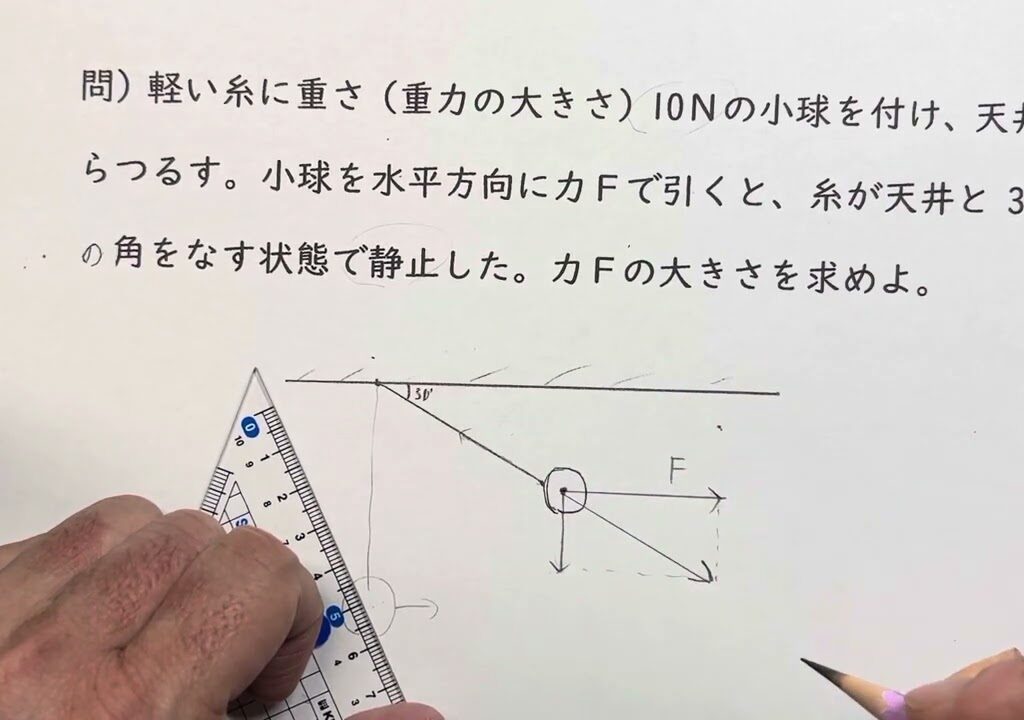 問）軽い糸に重さ（重力の大きさ）10Nの小球を付け、天井
らつるす。小球を水平方向に力Fで引くと、糸が天井と 3
の角をなす状態で静止した。力Fの大きさを求めよ。
30°
F
0
10
1
9
2
8
3
7
4
5
6
4
7
3